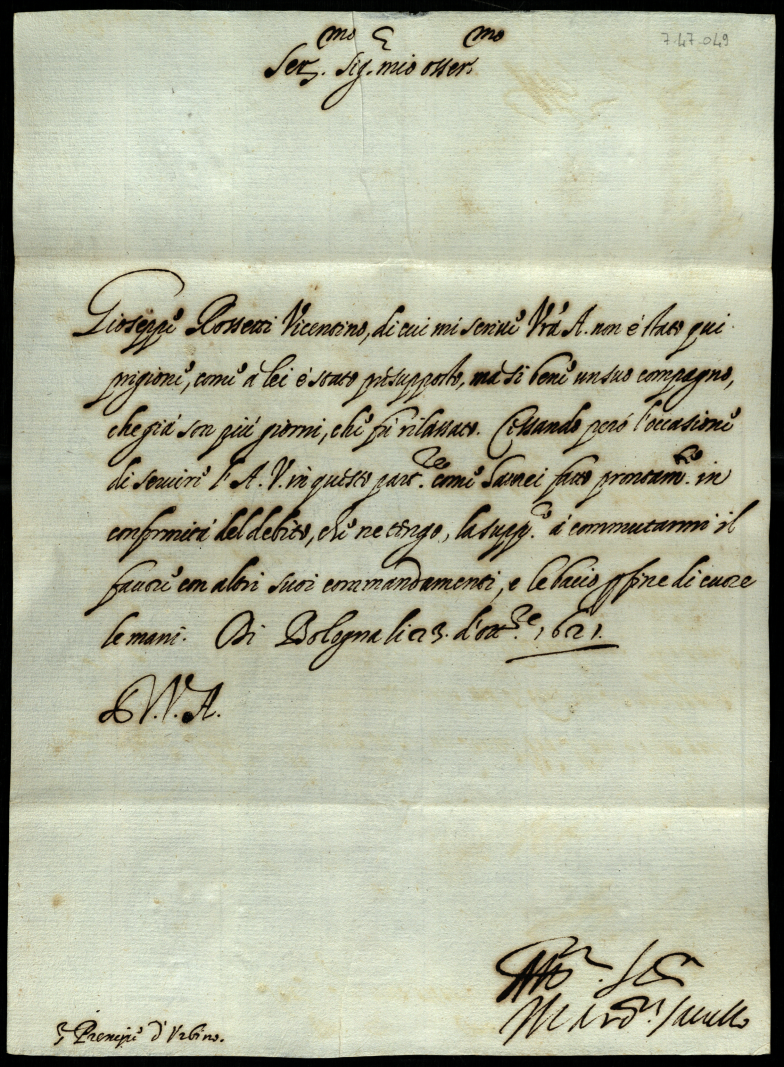 7.47.049
Ser.mo Sig.r mio osser.mo
Gioseppe Rossetti Vicentino, di cui mi scrive Vrā A. non è stato qui
prigione, come à lei è stato presupposto, mà si bene un suo compagno,
che già son più giorni, che fù rilassato. Cessando però l'occasione
di servire l'A. V. in questo part.re come havrei fatto prontam.te in
conformità del debito, che ne tengo, la supp.co à commutarmi il
favore con altri suoi commandamenti, e le bacio p fine di cuore
le mani. Di Bologna li 23. d'ott.re 1621.
D V. A.
Aff.mo Ser.r
Il Card.l Savello
S. Prencipe d'Urbino.